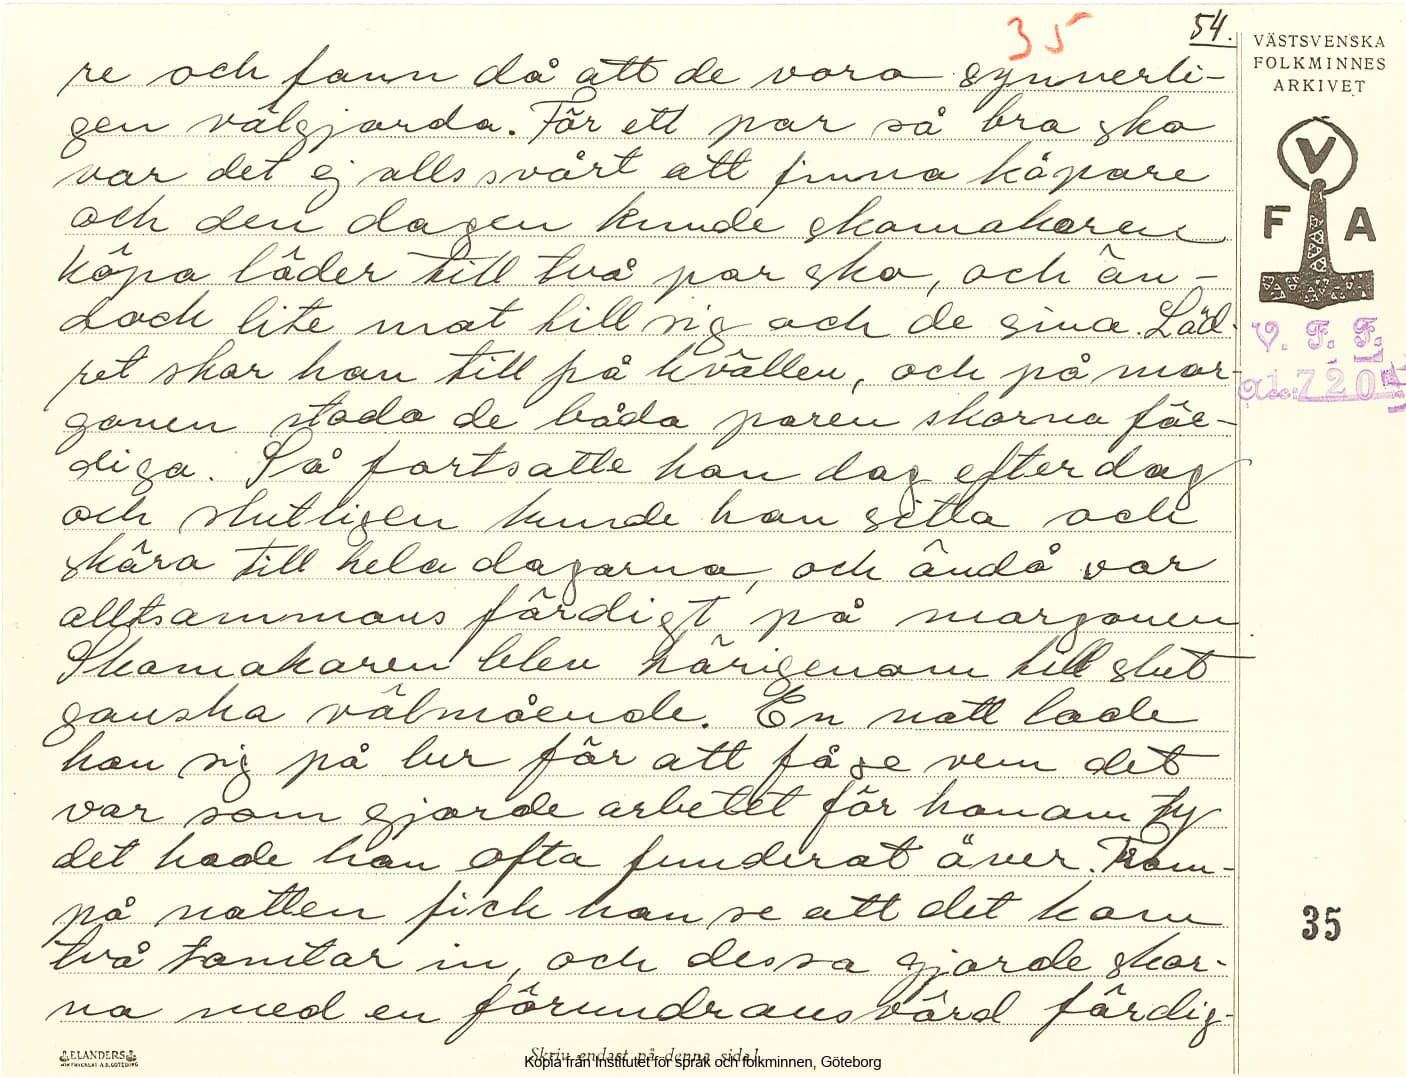 35
54.
VÄSTSVENSKA
FOLKMINNES
ARKIVET
V
F A
V. F. F.
re och fann då att de voro synnerli-
gen välgjorda. För ett par så bra sko
var det ej alls svårt att finna köpare
och den dagen kunde skomakaren
köpa läder till två par sko, och än-
dock lite mat till sig och de sina. Läd-
ret skar han till på kvällen, och på mor-
gonen stodo de båda paren skorna fär-
diga. Så fortsatte han dag efter dag
och slutligen kunde han sitta och
skära till hela dagarna, och ändå var
alltsammans färdigt på morgonen.
Skomakaren blev härigenom till slut
ganska välmående. En natt lade
han sig på lur för att få se vem det
var som gjorde arbetet för honom ty
det hade han ofta funderat över. Fram-
på natten fick han se att det kom
två tomtar in, och dessa gjorde skor-
na med en förundransvärd färdig-
35
ELANDERS
Skriv endast på denna sida!
Kopia från Institutet för språk och folkminnen, Göteborg